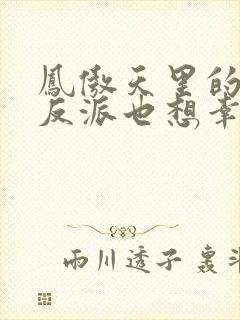 鳳傲天里的
反派也想幸
雨川透子 裏